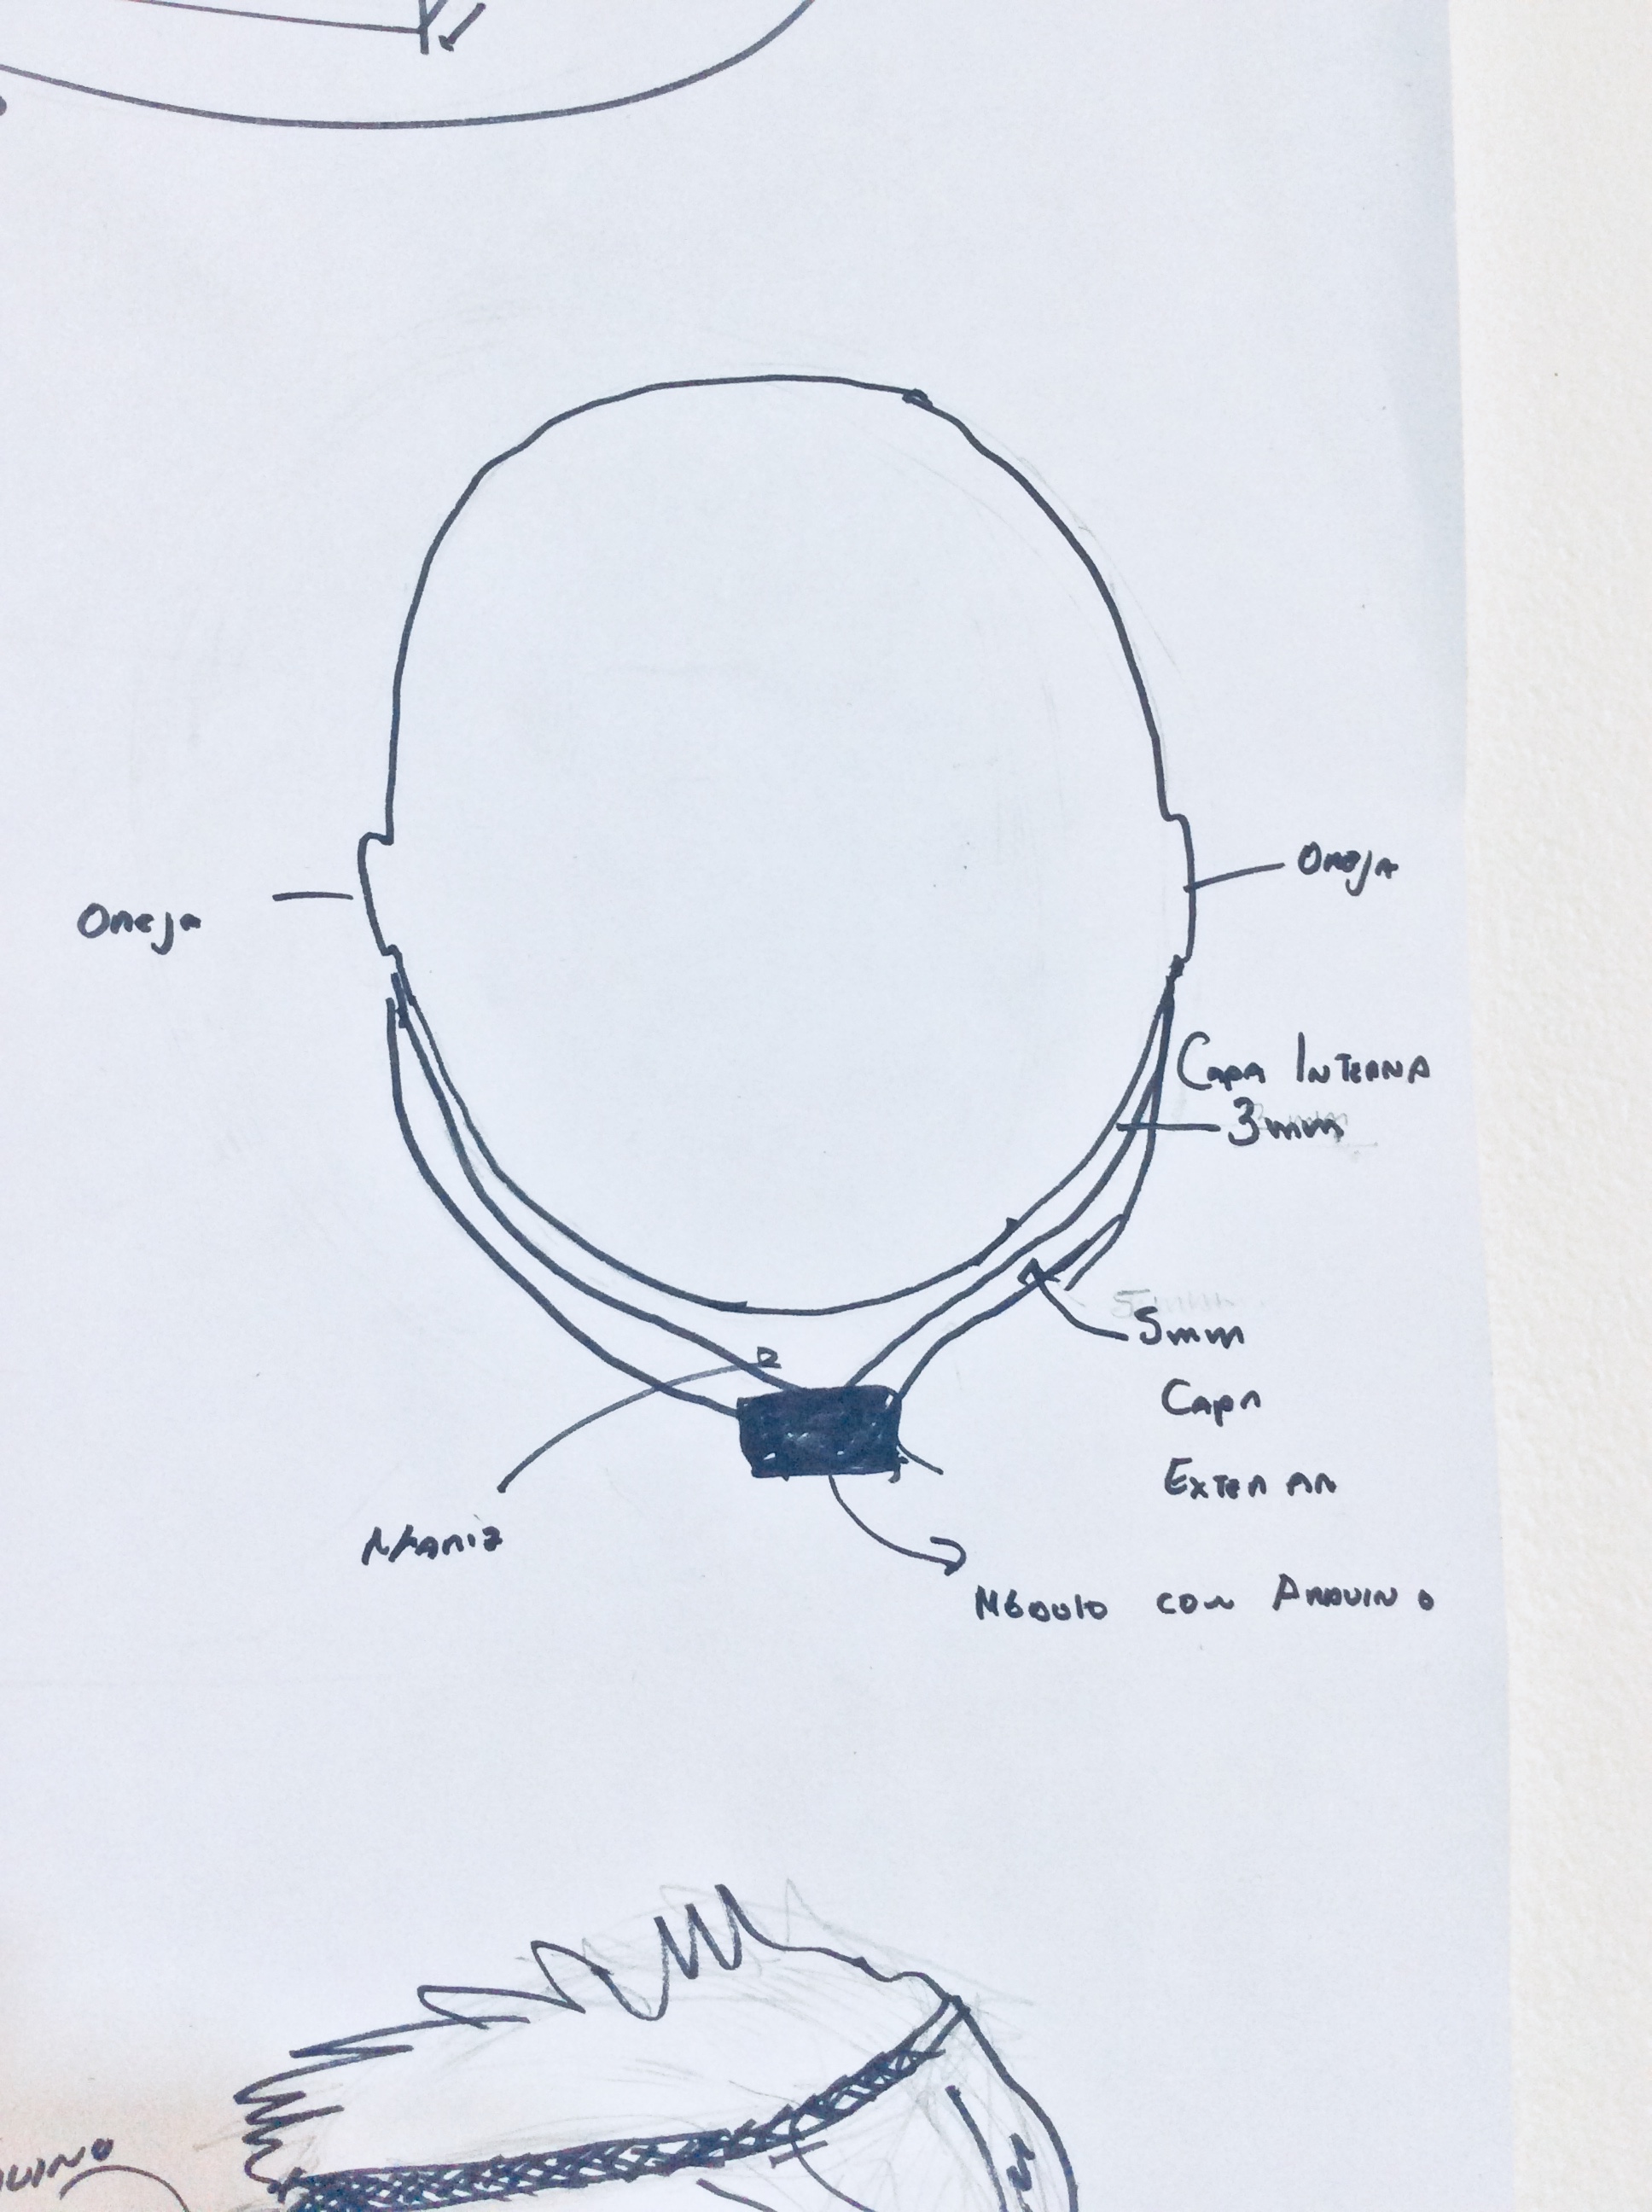 Oreja
Oreja
Capa Interna
3mm
5mm
Capa
Exterior
Nariz
Módulo con Arduino